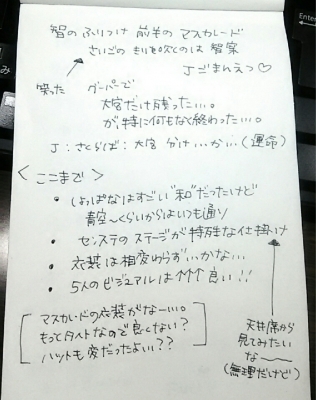 智のふりつけ 前半のマスカレード
さいごのキリを吹くのは智案
Jごまんえつ♡
笑った グーパーで
大宮だけ残った…。
が特に何もなく終わった…。
J:さくらば:大宮 分け…かい…(運命)
<ここまで>
• しょっぱなはすごい“和”だったけど
青空〜くらいからはいつも通り
• センステのステージが特殊な仕掛け
• 衣装は相変わらず…かな…
• 5人のビジュアルは↑↑↑良い!!
マスカレードの衣装がな〜…。
もっとタイトなので良くない?
ハットも変だったよ…??
天井席から
見てみたい
な〜〜
(無理だけど)
Enter
み